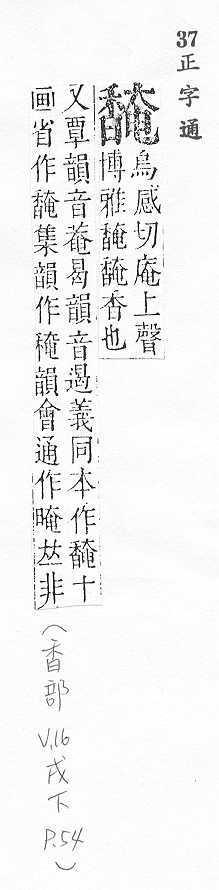 37 正字通
馣
烏感切庵上聲
博雅馣馣香也
又覃韻音菴曷韻音遏義同本作馣十
画省作馣集韻作稖韻會通作晻𠀤非
(香部 V.16 戌下 P.54)